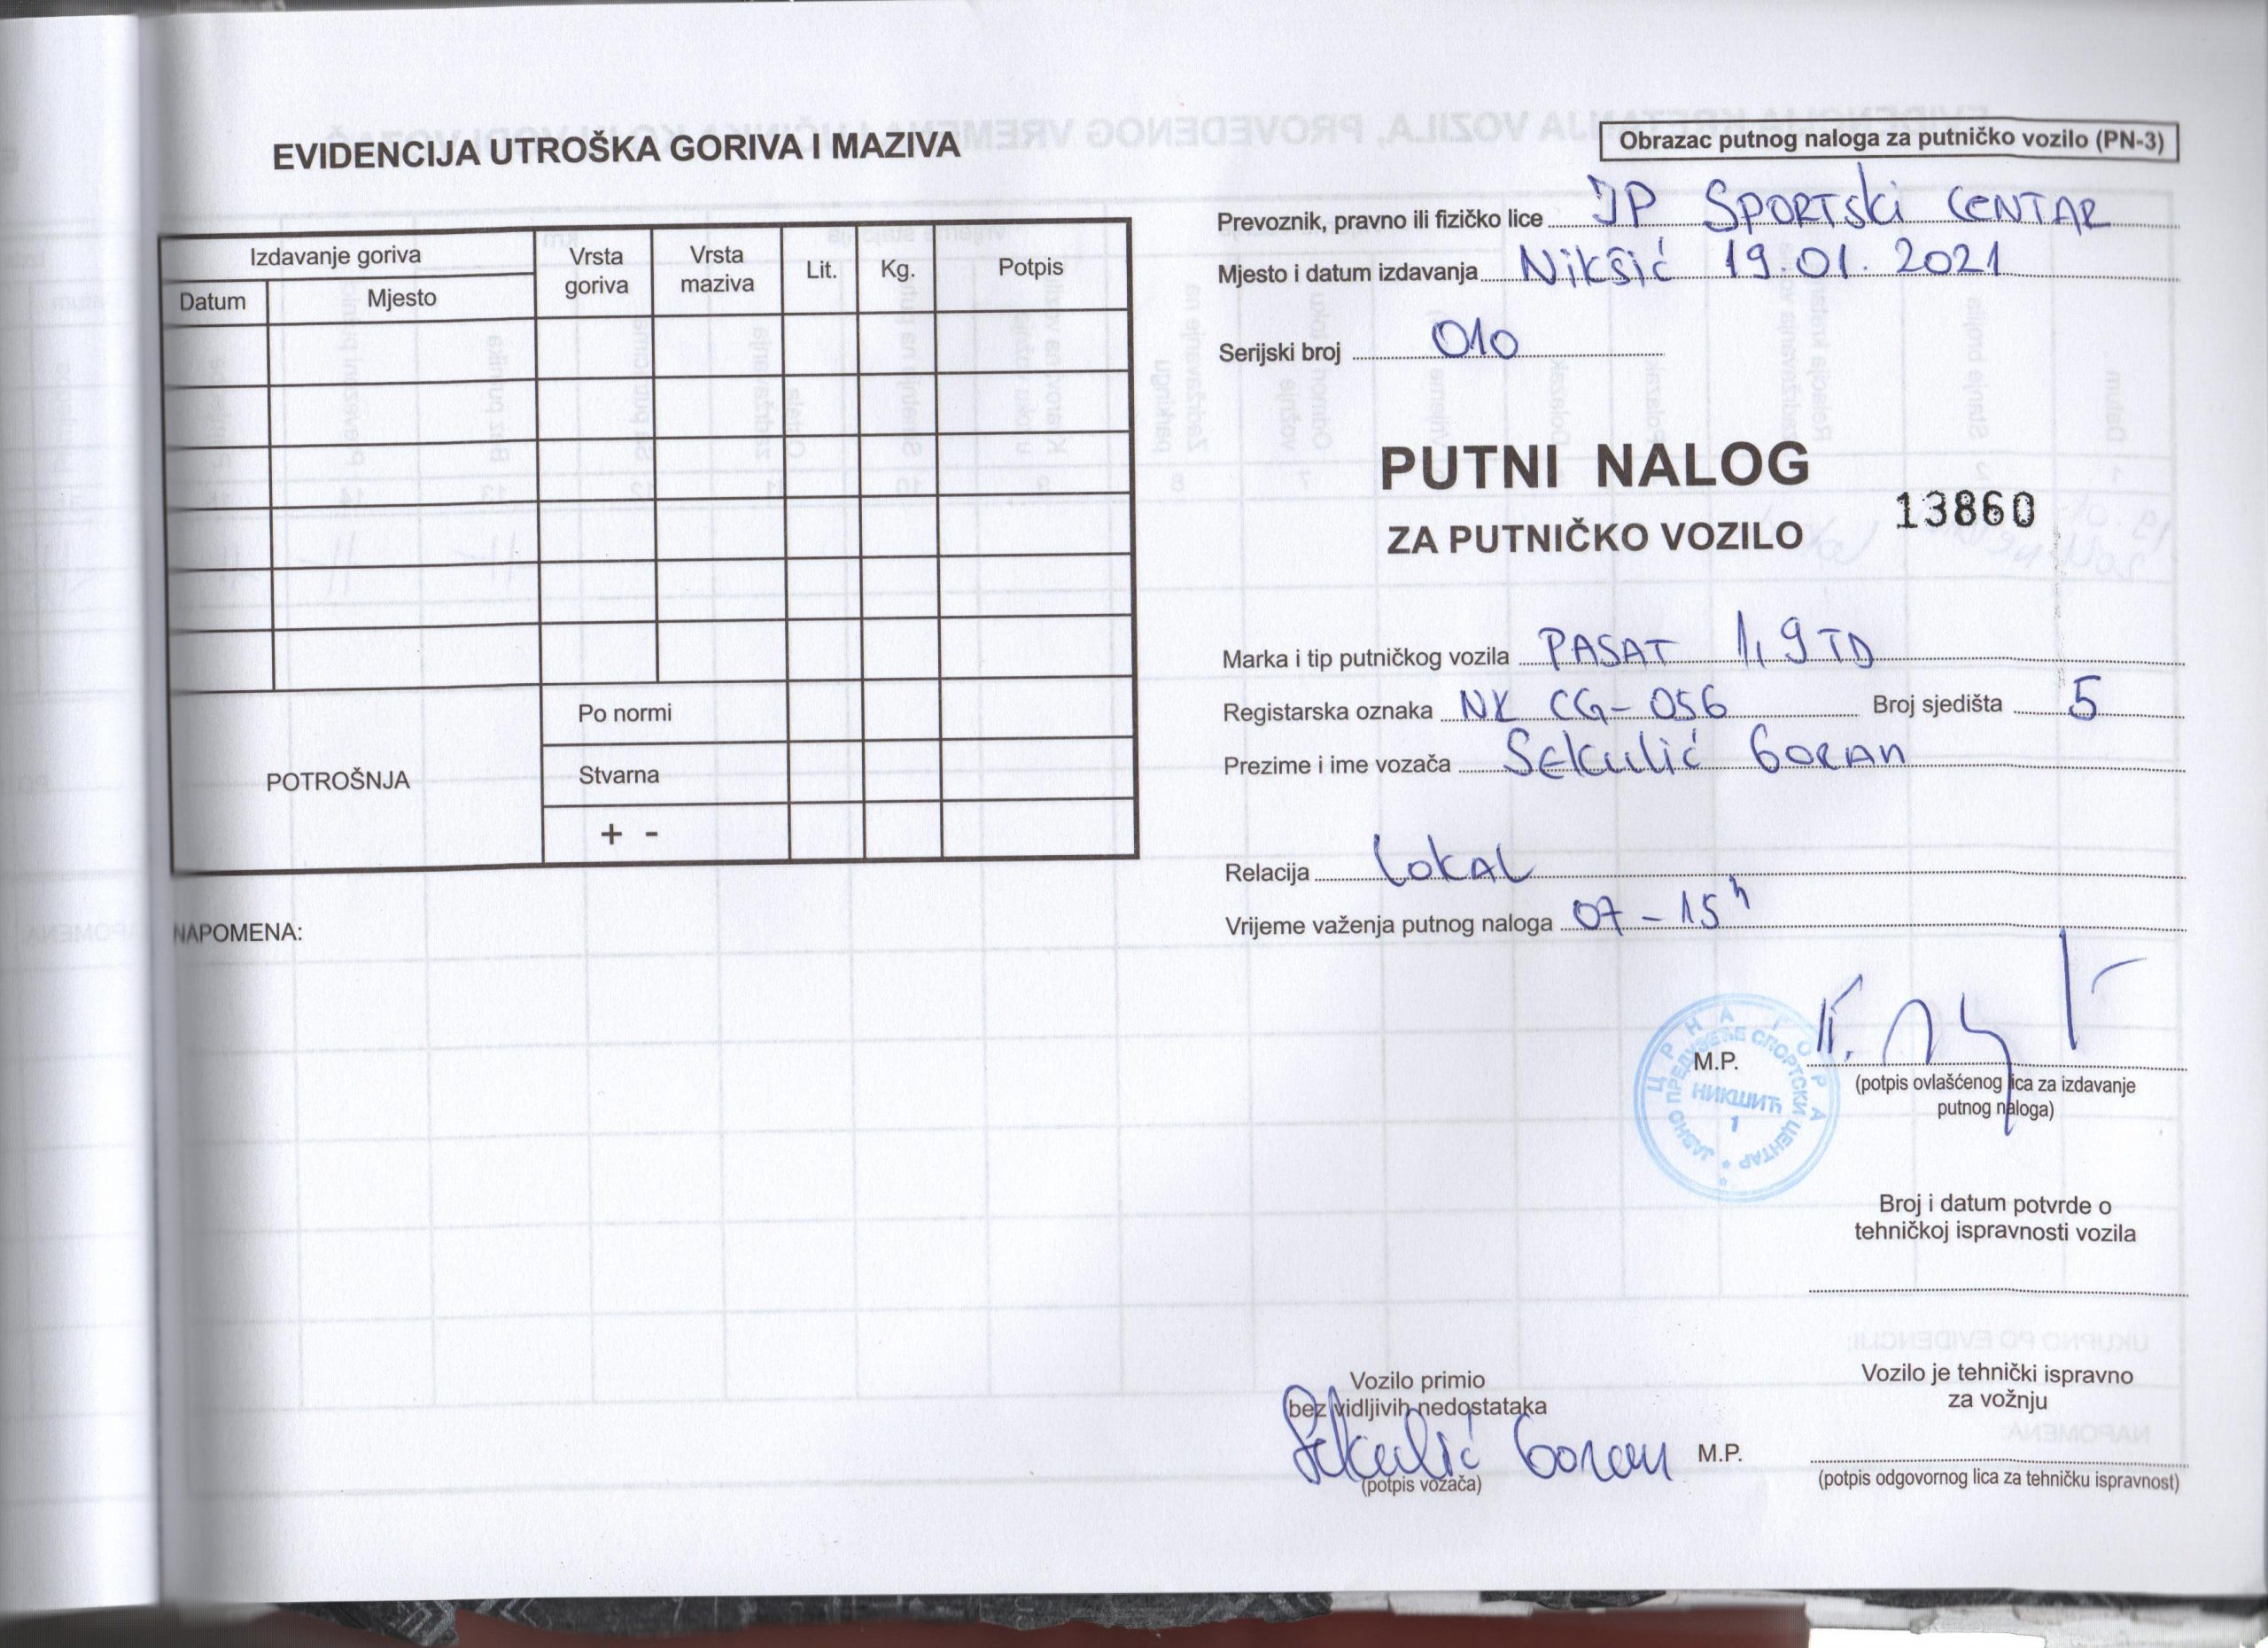 EVIDENCIJA UTROŠKA GORIVA I MAZIVA
Izdavanje goriva
Datum
Mjesto
Vrsta goriva
Vrsta maziva
Lit.
Kg.
Potpis
POTROŠNJA
Po normi
Stvarna
+ -
NAPOMENA:
Obrazac putnog naloga za putničko vozilo (PN-3)
Prevoznik, pravno ili fizičko lice JP SPORTSki CENTAR
Mjesto i datum izdavanja Nikšić 19.01.2021
Serijski broj 010
PUTNI NALOG
13860
ZA PUTNIČKO VOZILO
Marka i tip putničkog vozila PASAT 1,9 TD
Registarska oznaka NK CG-056 Broj sjedišta 5
Prezime i ime vozača Sekulić Goran
Relacija Lokal
Vrijeme važenja putnog naloga 07-15h
ЦРНА ГОРА
ЈАВНО ПРЕДУЗЕЋЕ СПОРТСКИ ЦЕНТАР
НИКШИЋ
1
M.P.
(potpis ovlašćenog lica za izdavanje
putnog naloga)
Broj i datum potvrde o
tehničkoj ispravnosti vozila
Vozilo primio
bez vidljivih nedostataka
Sekulić Goran
(potpis vozača)
Vozilo je tehnički ispravno
za vožnju
M.P.
(potpis odgovornog lica za tehničku ispravnost)